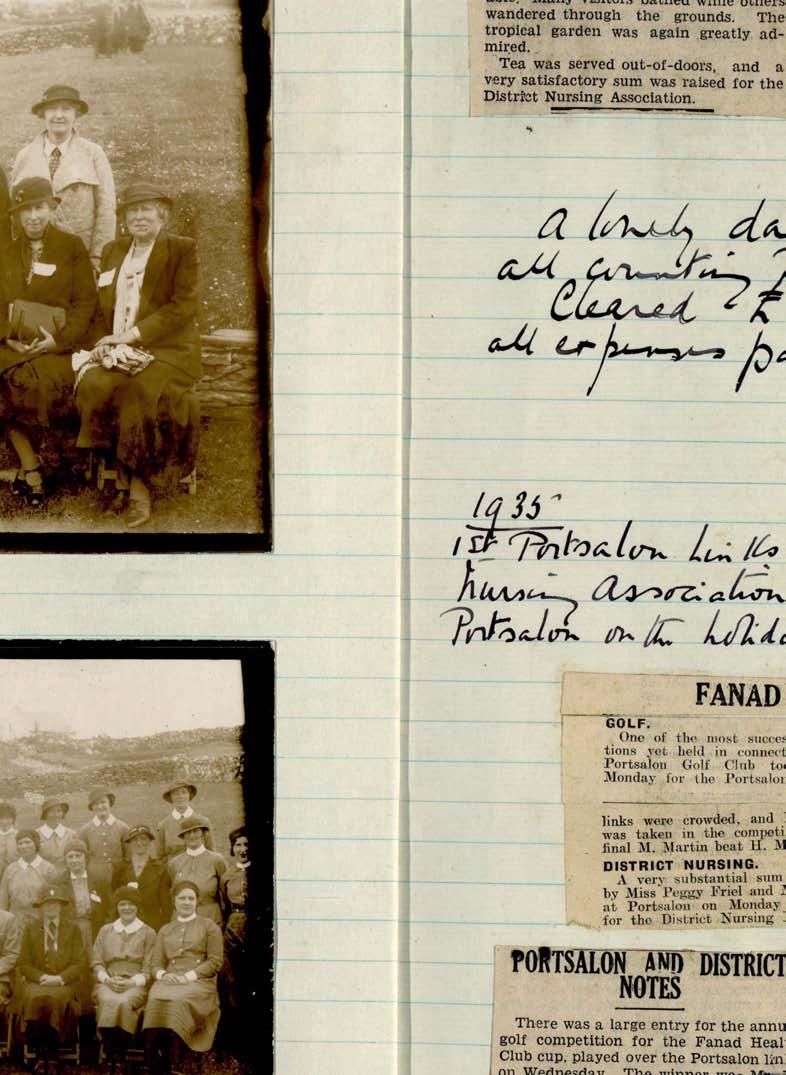 able. Many visitors bathed while others
wandered through the grounds. The
tropical garden was again greatly ad-
mired.
Tea was served out-of-doors, and a
very satisfactory sum was raised for the
District Nursing Association.
A lovely da
all counting
Cleared £
all expenses pa
1935
1st Portsalon Links
Nursing Association
Portsalon on the holida
FANAD
GOLF.
One of the most succes
tions yet held in connect
Portsalon Golf Club to
Monday for the Portsalon
links were crowded, and
was taken in the competi
final M. Martin beat H. M
DISTRICT NURSING.
A very substantial sum
by Miss Peggy Friel and
at Portsalon on Monday
for the District Nursing
PORTSALON AND DISTRICT
NOTES
There was a large entry for the annu
golf competition for the Fanad Heal
Club cup, played over the Portsalon lin
on Wednesday. The winner was